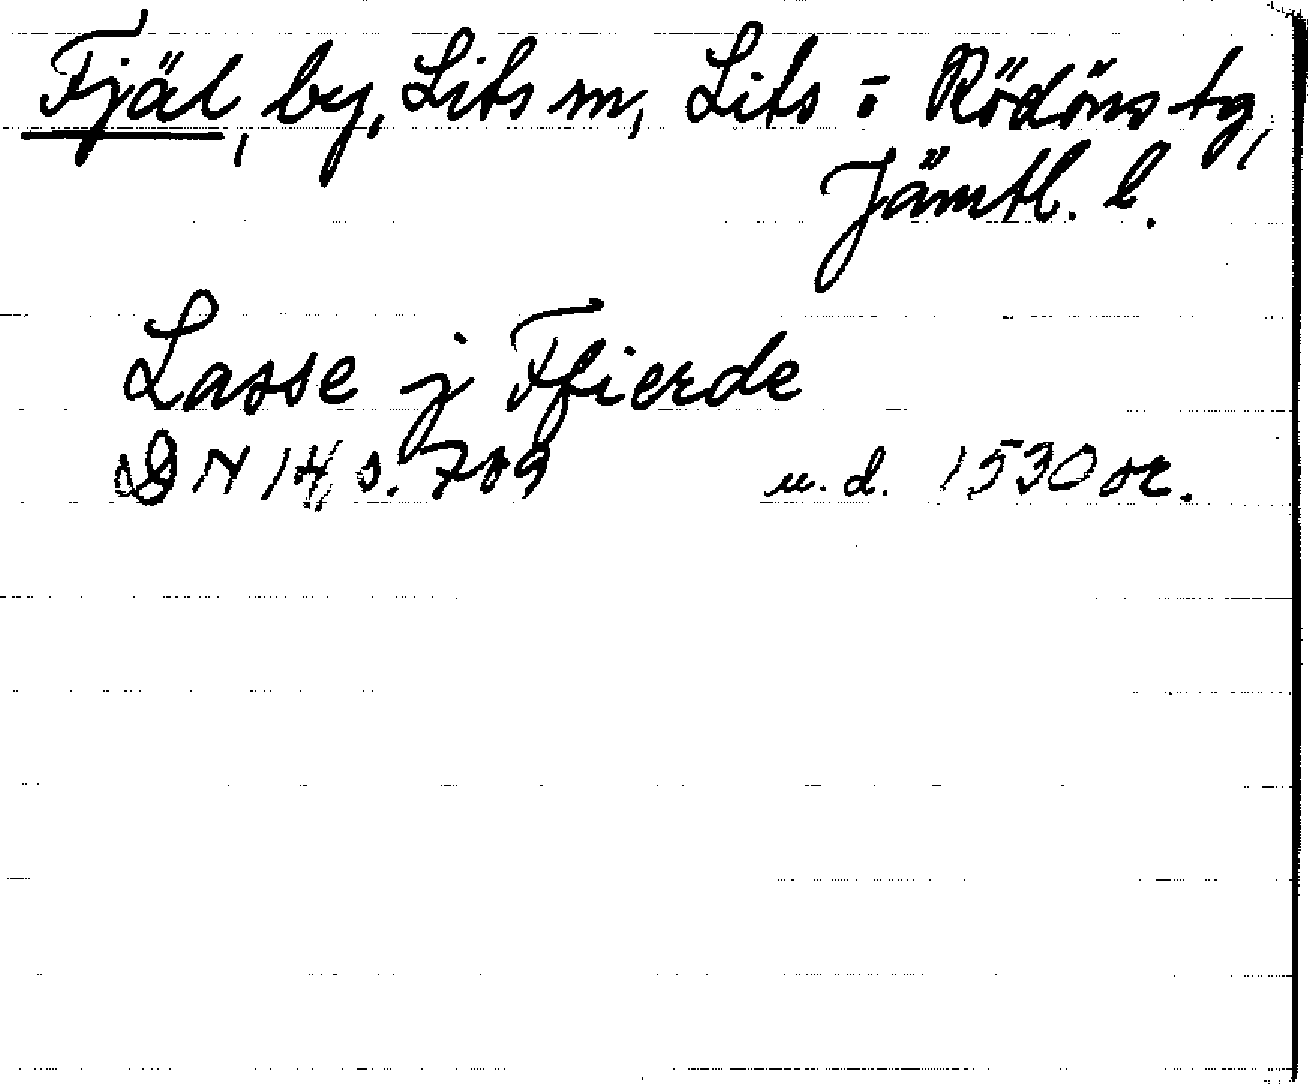 Fjäl, by, Lits sn, Lits o Rödöns tg,
Jämtl. l.
Lasse j Ffierde
DN 14, s. 709 u. d. 1530 or.